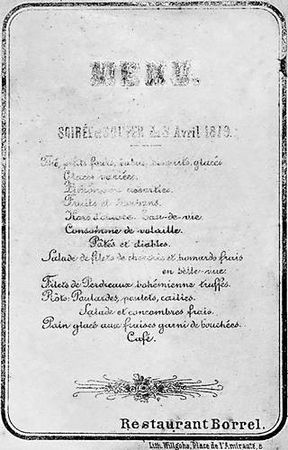 MENU.
SOIRÉE et SOUPER du Avril 1879.
Thé, petits fours, glacés
Glaces variées.
assorties.
Fruits et bonbons.
Hors d'œuvre. Eau-de-vie.
Consommé de volaille.
Pâtés et diables.
Salade de filets de et homards frais
en belle-vue.
Filets de Perdreaux bohémienne truffés.
Rots: Poulardes, poulets, cailles.
Salade et concombres frais.
Pain glacé aux fraises garni de bouchées.
Café.
Restaurant Borrel.
Lith. Place de l'Amirauté,